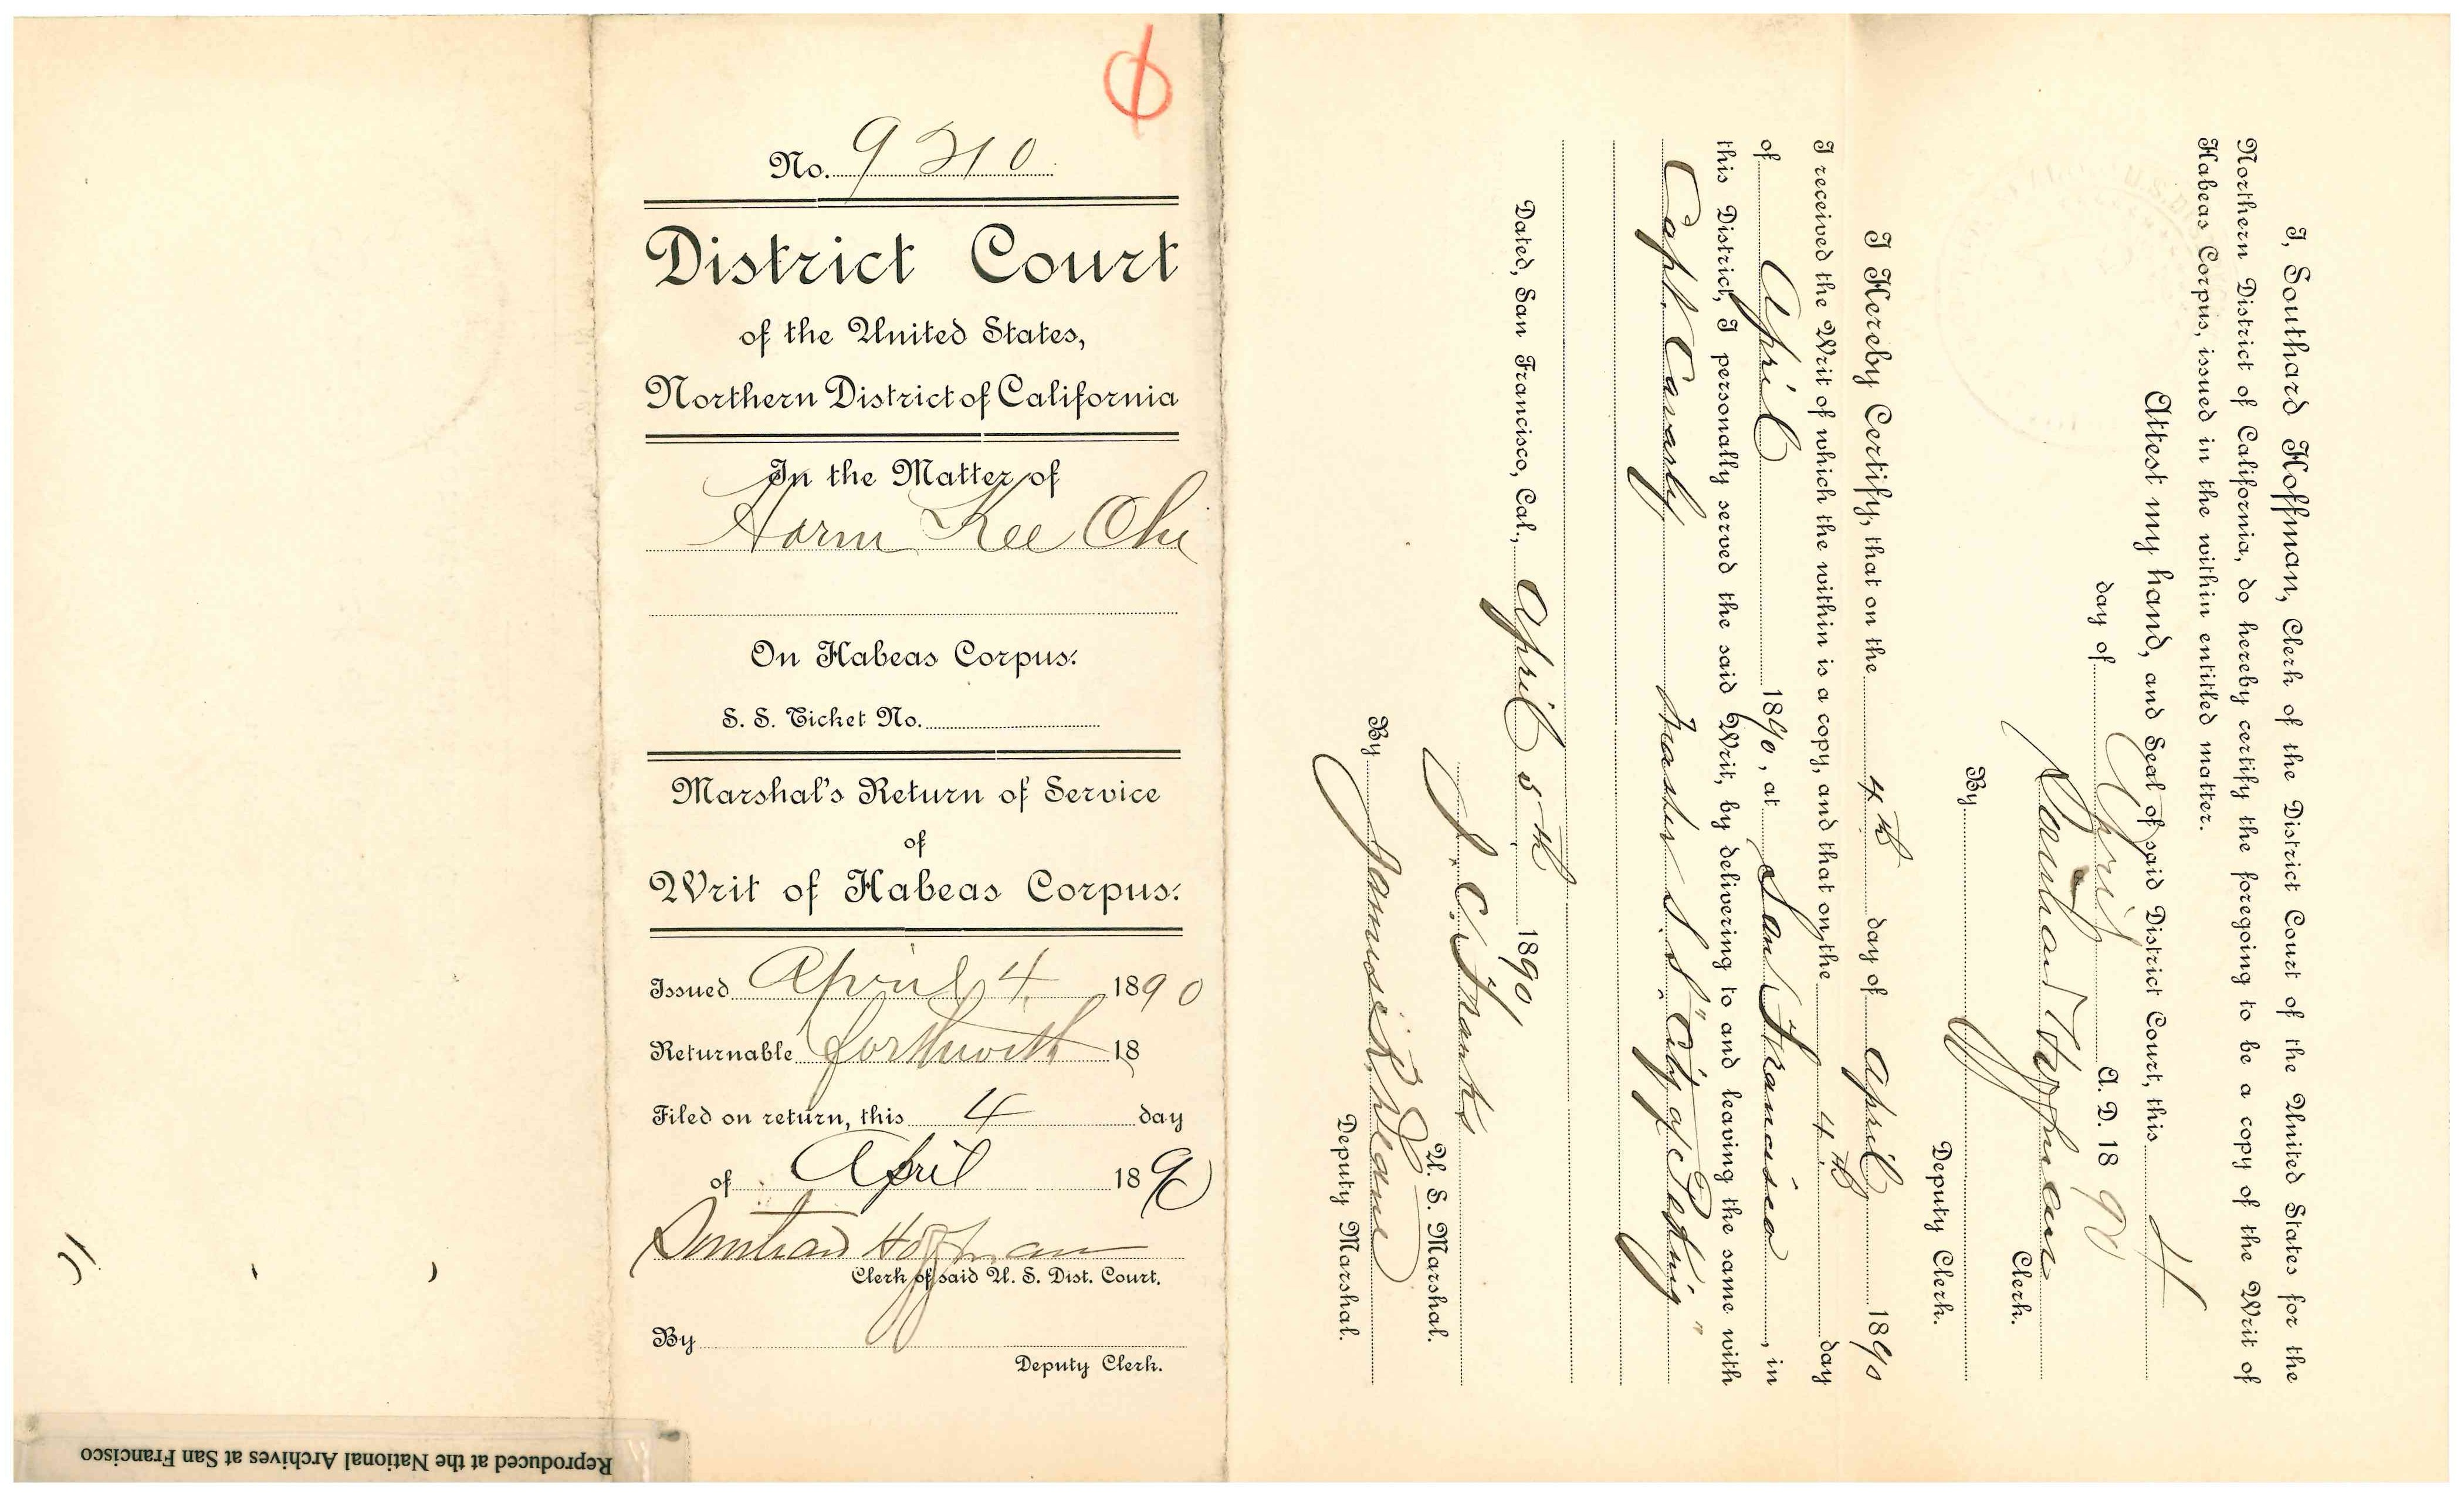 No. 9210
District Court
of the United States,
Northern District of California
In the Matter of
Horm Kee Chi
On Habeas Corpus.
S. S. Ticket No.
Marshal's Return of Service
of
Writ of Habeas Corpus.
Issued April 4 1890
Returnable forthwith 18
Filed on return, this 4 day
of April 1890
Southard Hoffman
Clerk of said U. S. Dist. Court.
By
Deputy Clerk.
Reproduced at the National Archives at San Francisco
I, Southard Hoffman, Clerk of the District Court of the United States for the
Northern District of California, do hereby certify the foregoing to be a copy of the Writ of
Habeas Corpus, issued in the within entitled matter.
Attest my hand, and Seal of said District Court, this 4
day of April A. D. 1890
Southard Hoffman
Clerk.
By
Deputy Clerk.
I Hereby Certify, that on the 4th day of April 1890
I received the Writ of which the within is a copy, and that on the 4th day
of April 1890, at San Francisco, in
this District, I personally served the said Writ, by delivering to and leaving the same with
Capt. Cavarly Master S. S. "City of Peking"
Dated, San Francisco, Cal., April 5th 1890
J. C. Franks
U. S. Marshal.
By
Deputy Marshal.